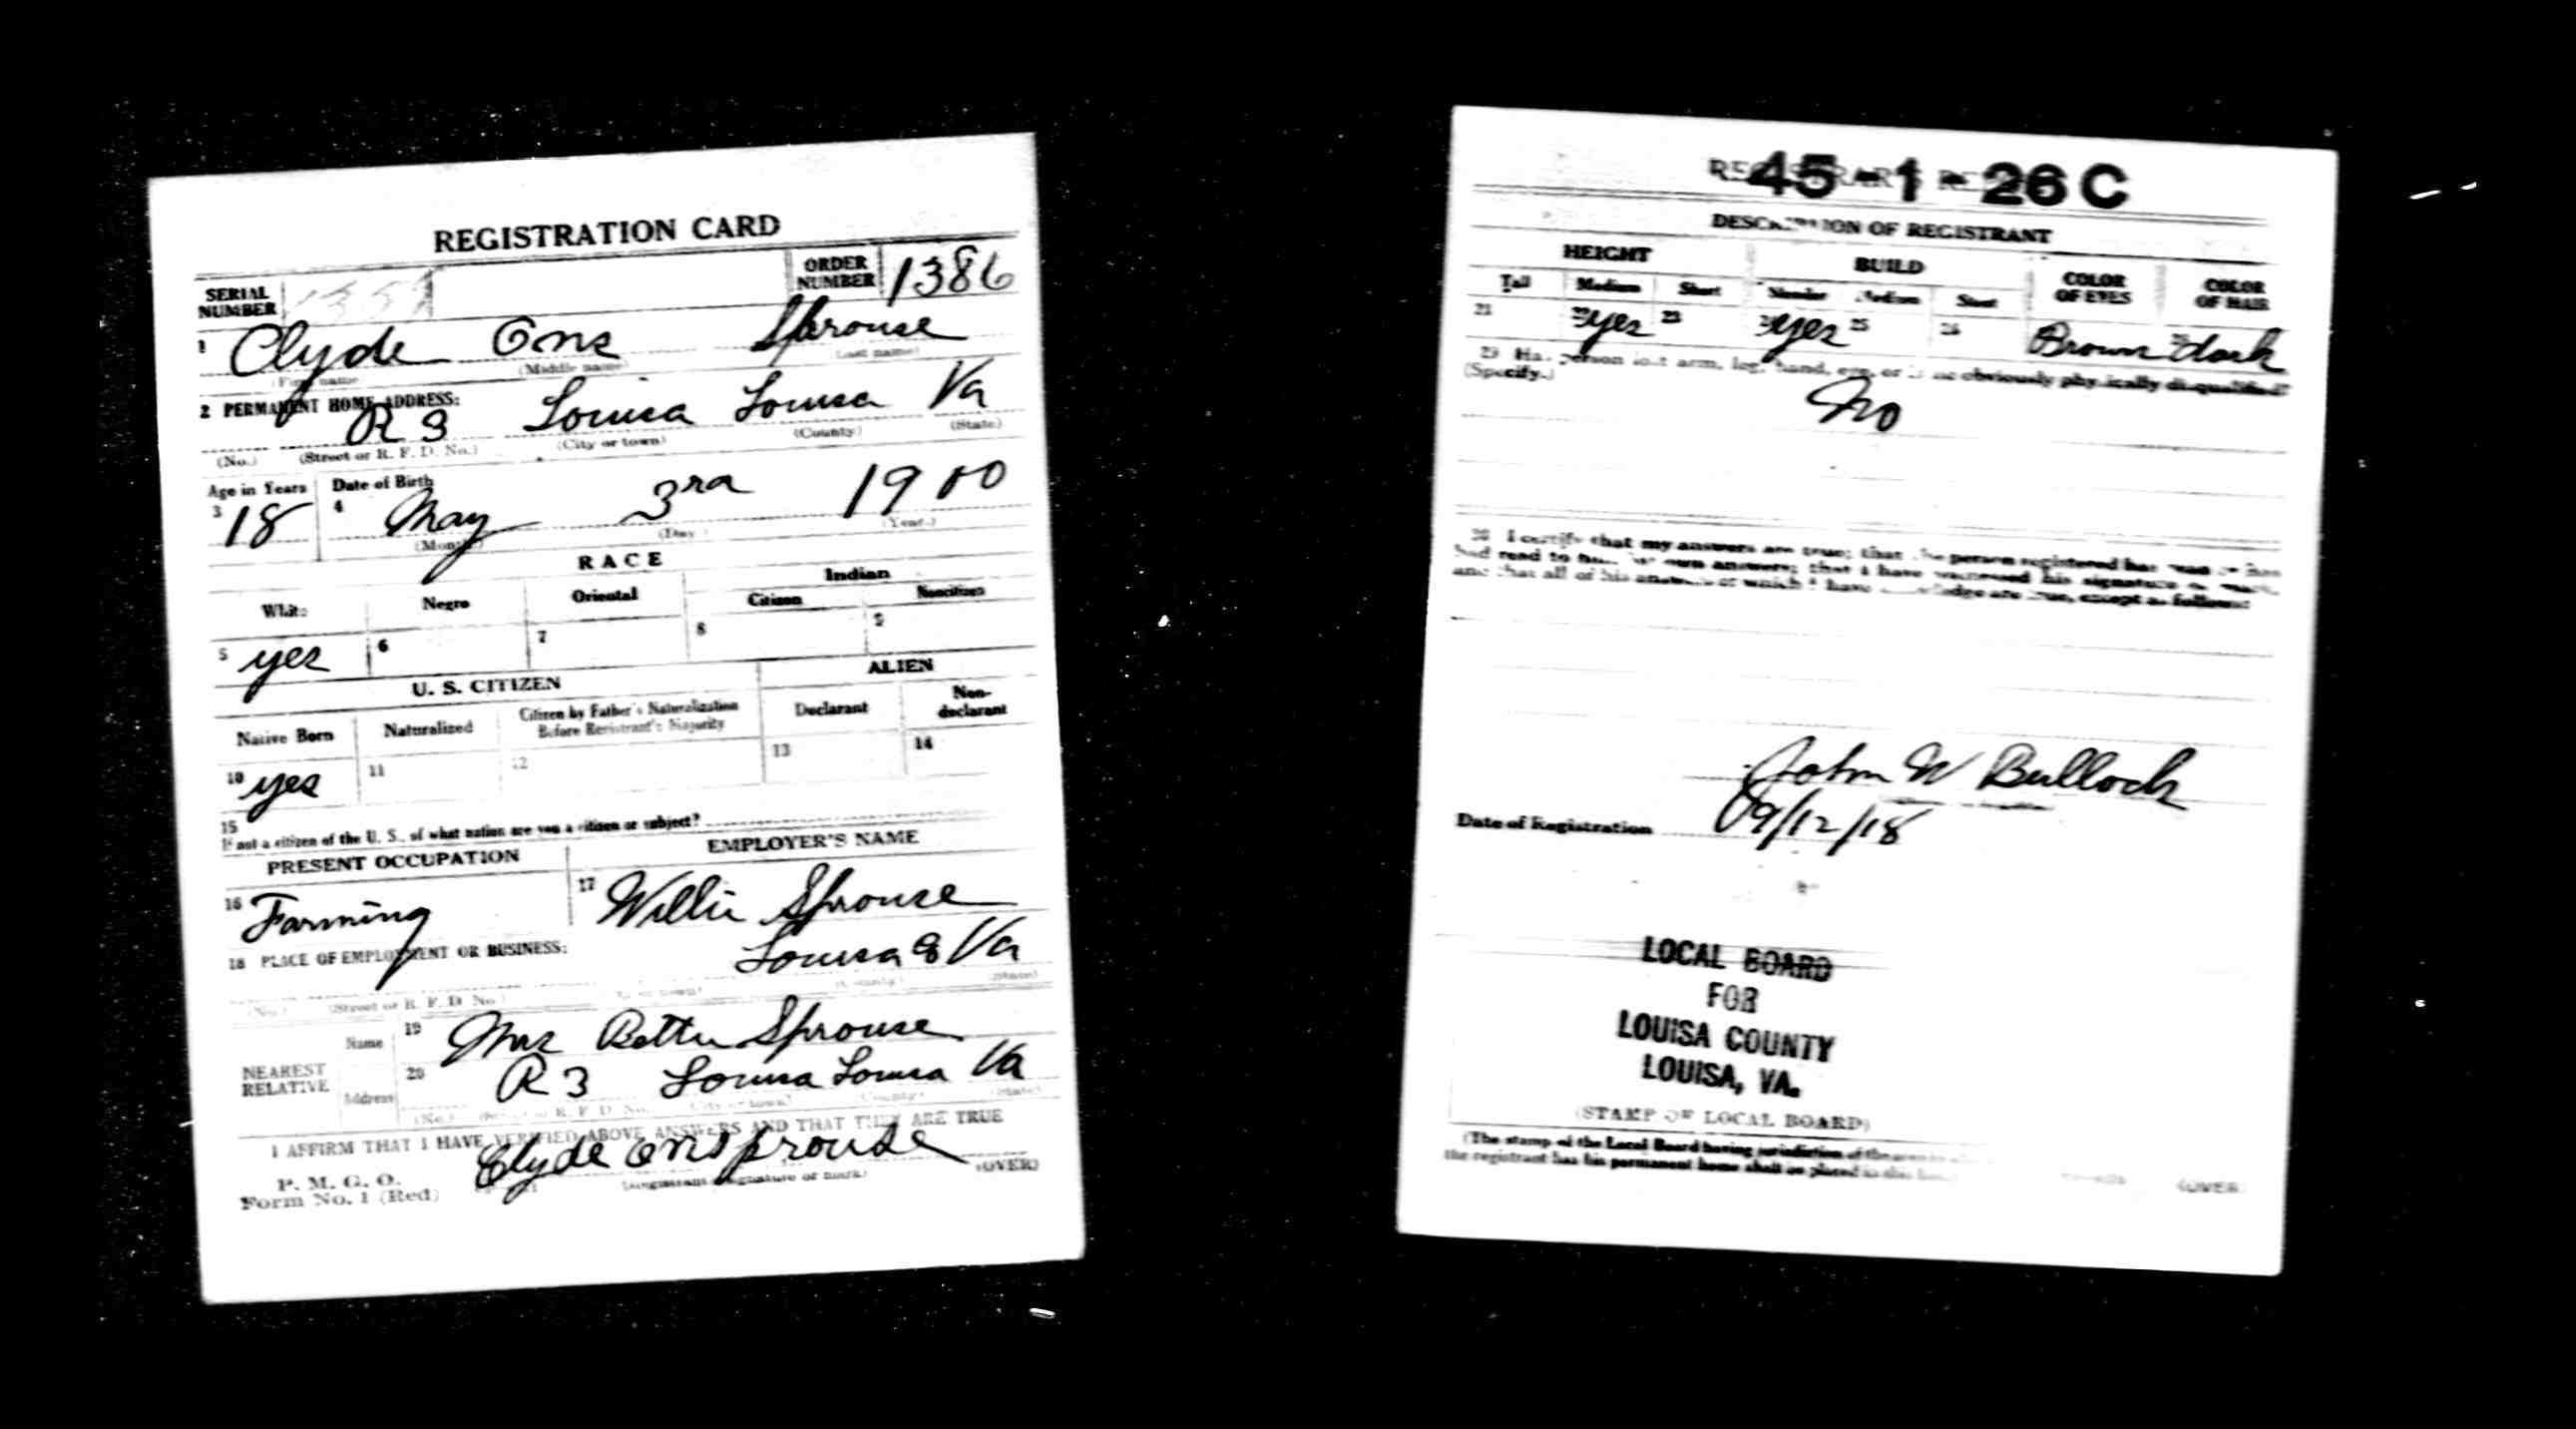 REGISTRATION CARD
SERIAL NUMBER ORDER NUMBER 1386
1 Clyde Ons Sprouse
(First name) (Middle name) (Last name)
2 PERMANENT HOME ADDRESS:
R 3 Louisa Louisa Va
(No.) (Street or R. F. D. No.) (City or town) (County) (State)
Age in Years Date of Birth
3 18 4 May 3rd 1900
(Month) (Day) (Year)
RACE
White Negro Oriental Indian
Citizen Noncitizen
5 yes 6 7 8 9
U. S. CITIZEN ALIEN
Native Born Naturalized Citizen by Father's Naturalization Before Registrant's Majority Declarant Non-declarant
10 yes 11 12 13 14
15 If not a citizen of the U. S., of what nation are you a citizen or subject?
PRESENT OCCUPATION EMPLOYER'S NAME
16 Farming 17 Willie Sprouse
18 PLACE OF EMPLOYMENT OR BUSINESS:
Louisa Va
(No.) (Street or R. F. D. No.) (City or town) (County) (State)
NEAREST RELATIVE
Name 19 Mrs Bettie Sprouse
Address 20 R 3 Louisa Louisa Va
(No.) (Street or R. F. D. No.) (City or town) (County) (State)
I AFFIRM THAT I HAVE VERIFIED ABOVE ANSWERS AND THAT THEY ARE TRUE
P. M. G. O.
Form No. 1 (Red) Clyde Ons Sprouse
(Registrant's signature or mark) (OVER)
45-1-26 C
DESCRIPTION OF REGISTRANT
HEIGHT BUILD COLOR OF EYES COLOR OF HAIR
Tall Medium Short Slender Medium Stout
21 22 yes 23 24 yes 25 26 Brown dark
29 Has person lost arm, leg, hand, eye, or is he obviously physically disqualified?
(Specify.)
No
30 I certify that my answers are true; that the person registered has read or has
had read to him his own answers; that I have witnessed his signature or mark,
and that all of his answers of which I have knowledge are true, except as follows:
John W Bullock
Date of Registration 9/12/18
LOCAL BOARD
FOR
LOUISA COUNTY
LOUISA, VA.
(STAMP OF LOCAL BOARD)
(The stamp of the Local Board having jurisdiction of the area in
the registrant has his permanent home shall be placed in this box.)
(OVER)